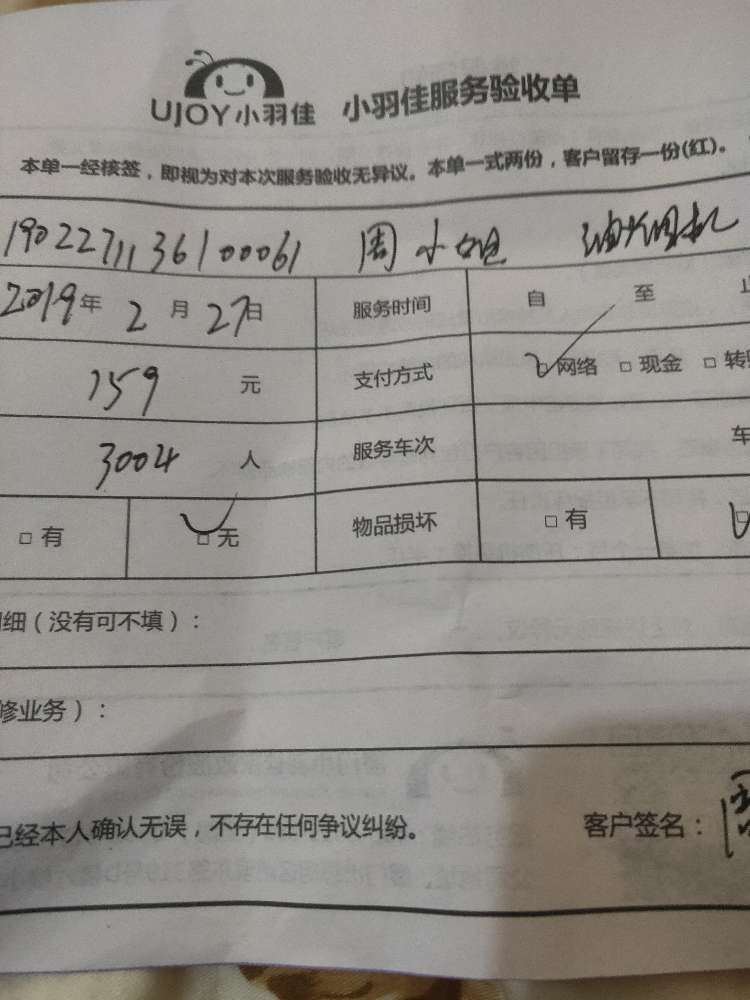 UJOY小羽佳 小羽佳服务验收单
本单一经核签，即视为对本次服务验收无异议。本单一式两份，客户留存一份(红)。
1902271136100061 周小姐 油烟机
2019年 2月 27日 服务时间 自 至 止
159 元 支付方式 □网络 □现金 □转
3004 人 服务车次 车
□有 □无 物品损坏 □有
细（没有可不填）：
修业务）：
已经本人确认无误，不存在任何争议纠纷。 客户签名：周